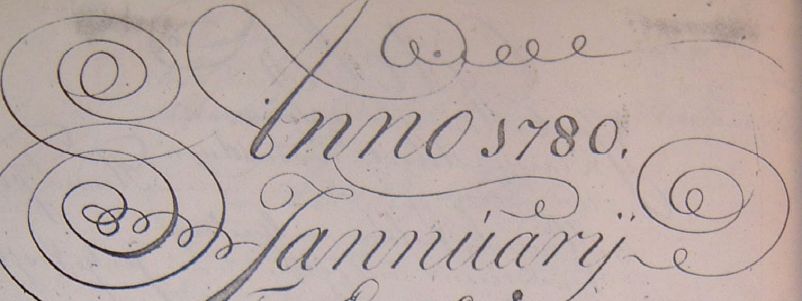 Anno 1780.
Jannúarÿ